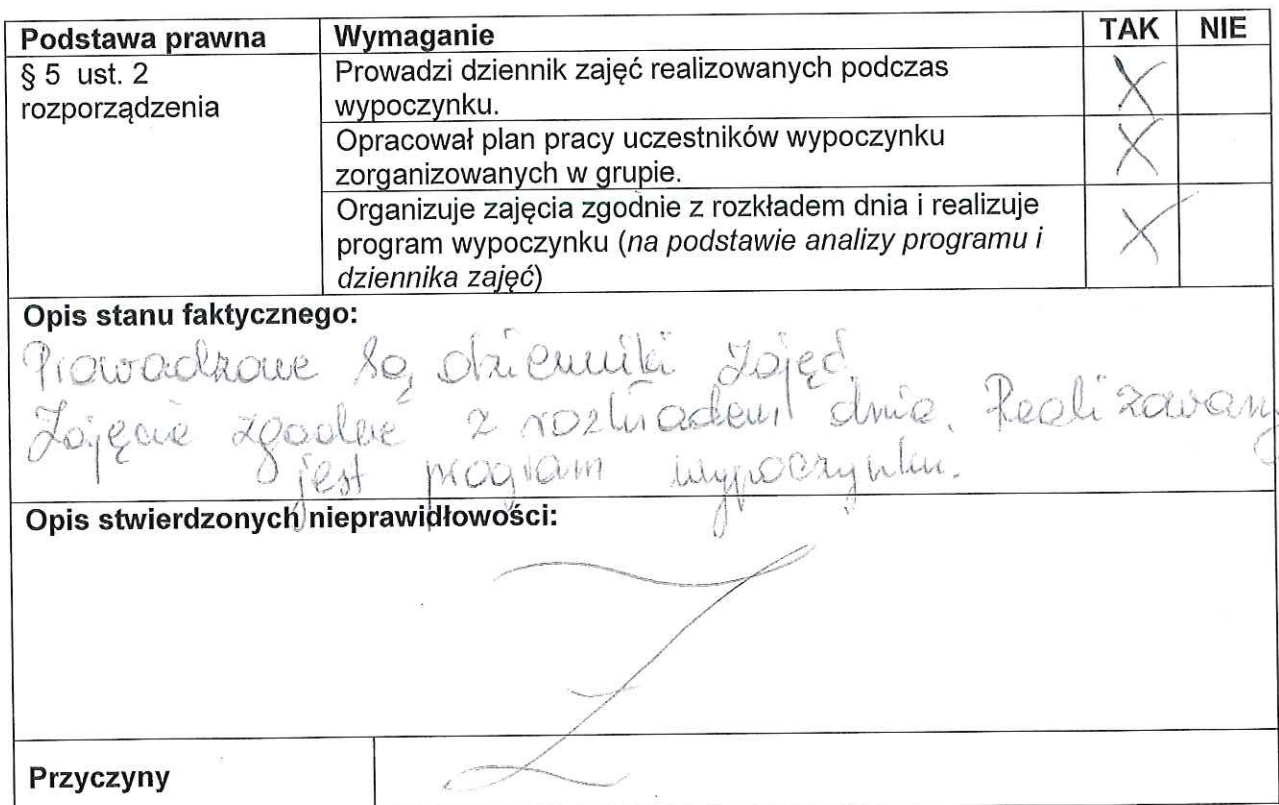 Podstawa prawna Wymaganie TAK NIE
§ 5 ust. 2 Prowadzi dziennik zajęć realizowanych podczas X
rozporządzenia wypoczynku.
Opracował plan pracy uczestników wypoczynku X
zorganizowanych w grupie.
Organizuje zajęcia zgodnie z rozkładem dnia i realizuje X
program wypoczynku (na podstawie analizy programu i
dziennika zajęć)
Opis stanu faktycznego:
Prowadzone są dzienniki zajęć.
Zajęcia zgodne z rozkładem dnia. Realizowany
jest program wypoczynku.
Opis stwierdzonych nieprawidłowości:
Przyczyny